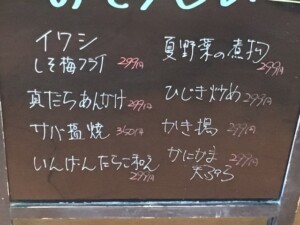 イワシ
しそ梅フライ 299円
真だらあんかけ 299円
サバ塩焼 350円
いんげんたらこ和え
299円
夏野菜の煮物
299円
ひじき炒め 299円
かき揚 299円
かにかま 299円
天ぷら